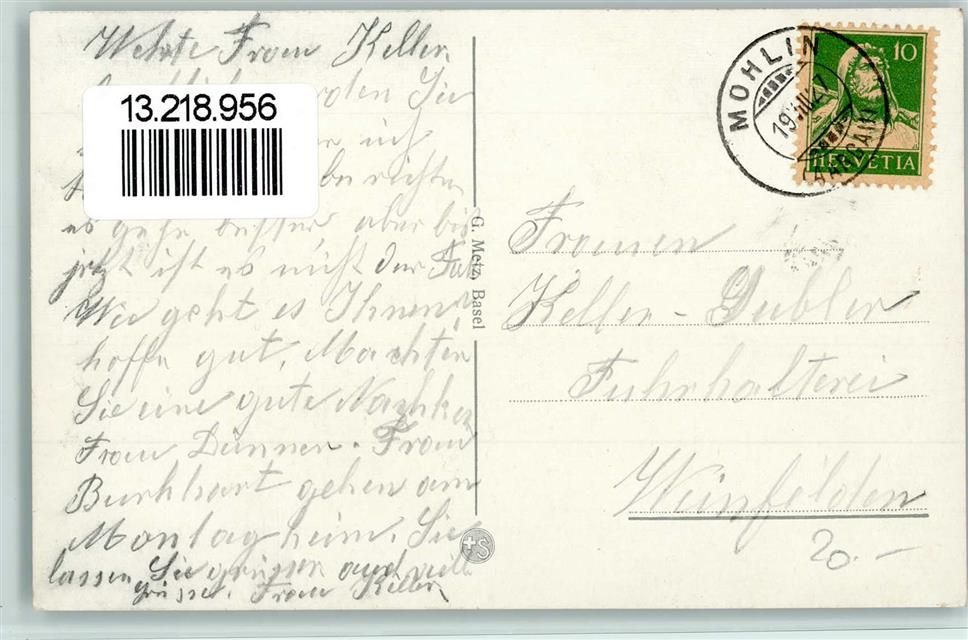 Werte Frau Keller.
Sie
13.218.956
berichten
es gehe besser aber bis
jetzt ist es nicht der Fall
Wie geht es Ihnen
hoffe gut. Machten
Sie eine gute Nachkur
Frau Dünner. Frau
Burkhart gehen am
Montag heim. Sie
lassen Sie grüssen und viele
Grüsse. Frau Keller
G. Metz, Basel
+S
MÖHLIN
(AARGAU)
10
HELVETIA
Frauen
Keller-Dubler
Fuhrhalterei
Weinfelden
20.-